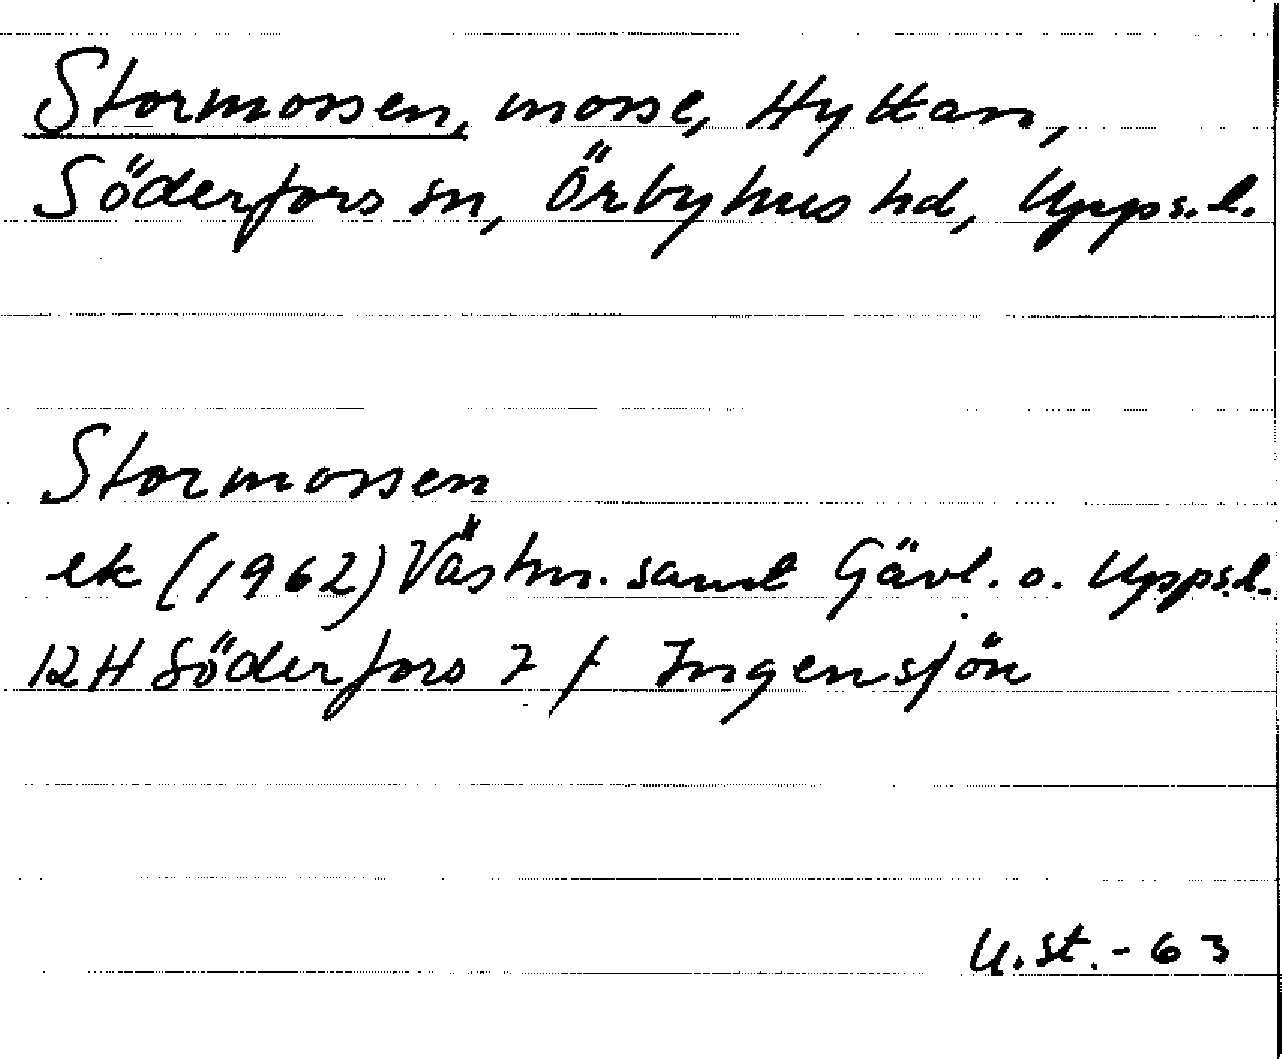 Stormossen, mosse, Hyttan,
Söderfors sn, Örbyhus hd, Upps. l.
Stormossen
ek (1962) Västm. samt Gävl. o. Upps.l.
12H Söderfors 7 f Ingensjön
U.St.-63